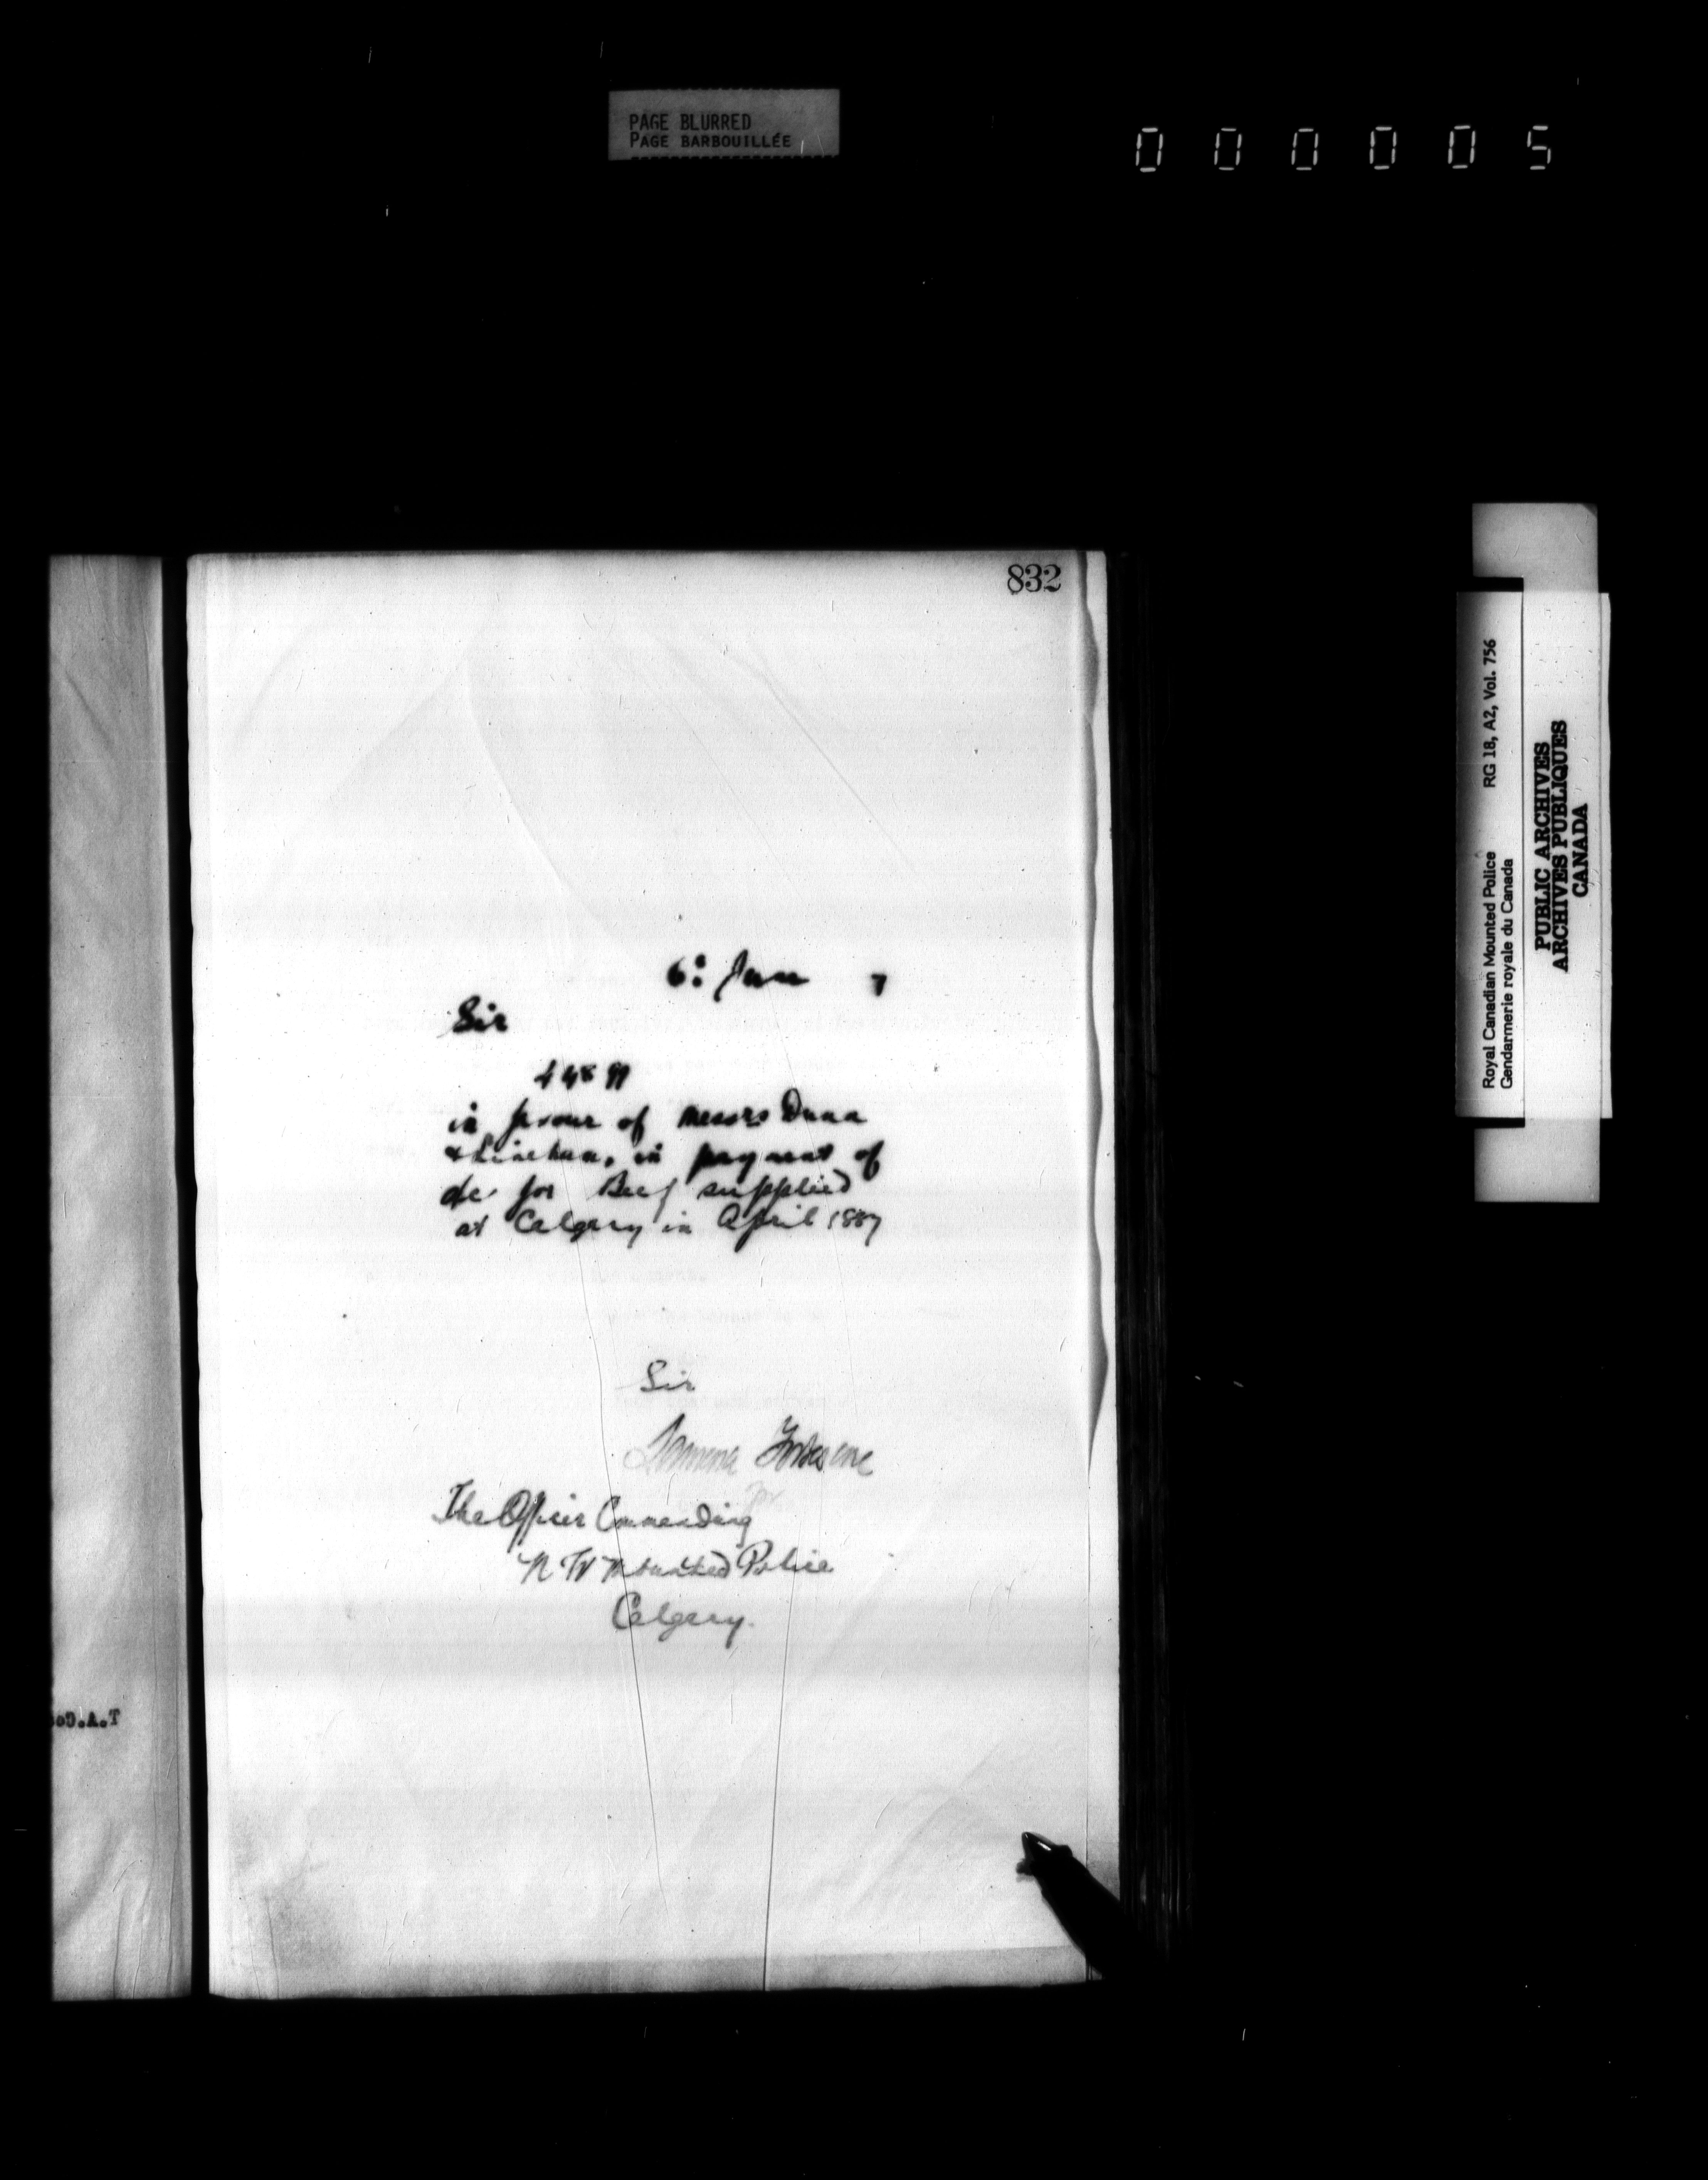 PAGE BLURRED
PAGE BARBOUILLÉE
000005
832
6: June 7
Sir
in favour of Messrs Dunn
& Lineham, in payment of
a/c for Beef supplied
at Calgary in April 1887
Sir
Fortescue
for
The Officer Commanding
N W Mounted Police
Calgary.
T.A.Co
Royal Canadian Mounted Police RG 18, A2, Vol. 756
Gendarmerie royale du Canada
PUBLIC ARCHIVES
ARCHIVES PUBLIQUES
CANADA